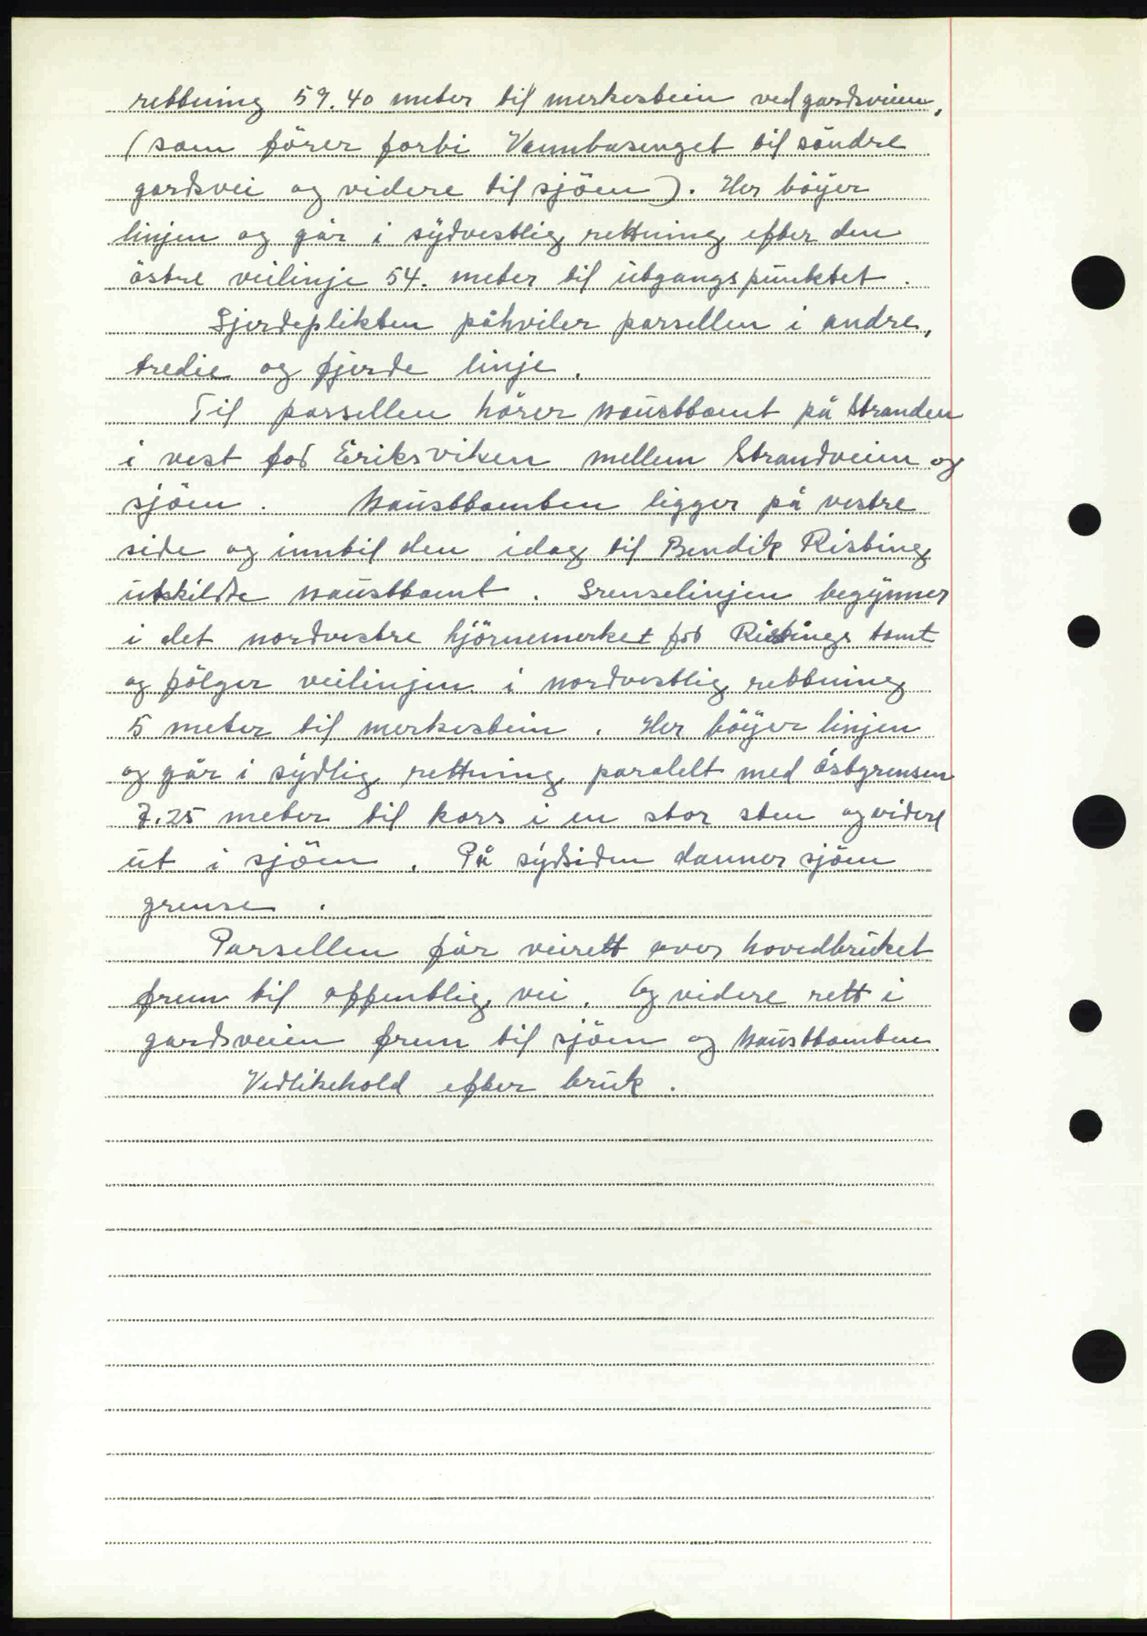 rettning 59.40 meter til merkestein ved gardsveien,
(som förer forbi Vannbasenget til söndre
gardsvei og videre til sjöen). Her böyer
linjen og går i sydvestlig rettning efter den
östre veilinje 54. meter til utgangspunktet.
Gjerdeplikten påhviler parsellen i andre,
tredie og fjerde linje.
Til parsellen hörer nausttomt på Stranden
i vest for Eriksviken mellem Strandveien og
sjöen. Nausttomten ligger på vestre
side og inntil den idag til Bendik Risting
utskildte nausttomt. Grenselinjen begynner
i det nordvestre hjörnemerket for Ristings tomt
og fölger veilinjen i nordvestlig rettning
5 meter til merkestein. Her böyer linjen
og går i sydlig rettning paralelt med östgrensen
7.25 meter til kors i en stor sten og videre
ut i sjöen. På sydsiden danner sjöen
grense.
Parsellen får veirett over hovedbruket
frem til offentlig vei. Og videre rett i
gardsveien frem til sjöen og Nausttomten.
Vedlikehold efter bruk.